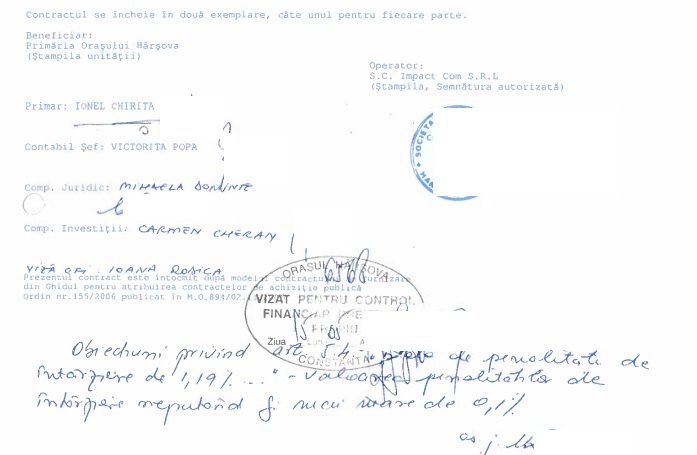 Contractul se încheie în două exemplare, câte unul pentru fiecare parte.
Beneficiar:
Primăria Oraşului Hârşova
(Ştampila unităţii)
Operator:
S.C. Impact Com S.R.L
(Ştampila, Semnătura autorizată)
Primar: IONEL CHIRITA
Contabil Şef: VICTORITA POPA
Comp. Juridic: MIHAELA
Comp. Investiţii: CARMEN CHERAN
VIZĂ CFI: IOANA
Prezentul contract este întocmit după modelul contractului furnizare
din Ghidul pentru atribuirea contractelor de achiziţie publică
Ordin nr.155/2006 publicat în M.O.894/02.
SOCIETA
ORASUL HARSOVA
VIZAT PENTRU CONTROL
FINANCIAR PRE
Ziua
CONSTANTA
Obiecţiuni privind art. 5.4. de penalităţi de
întârziere de 1,19% ..." - Valoarea penalităţilor de
întârziere neputând fi mai mare de 0,1%